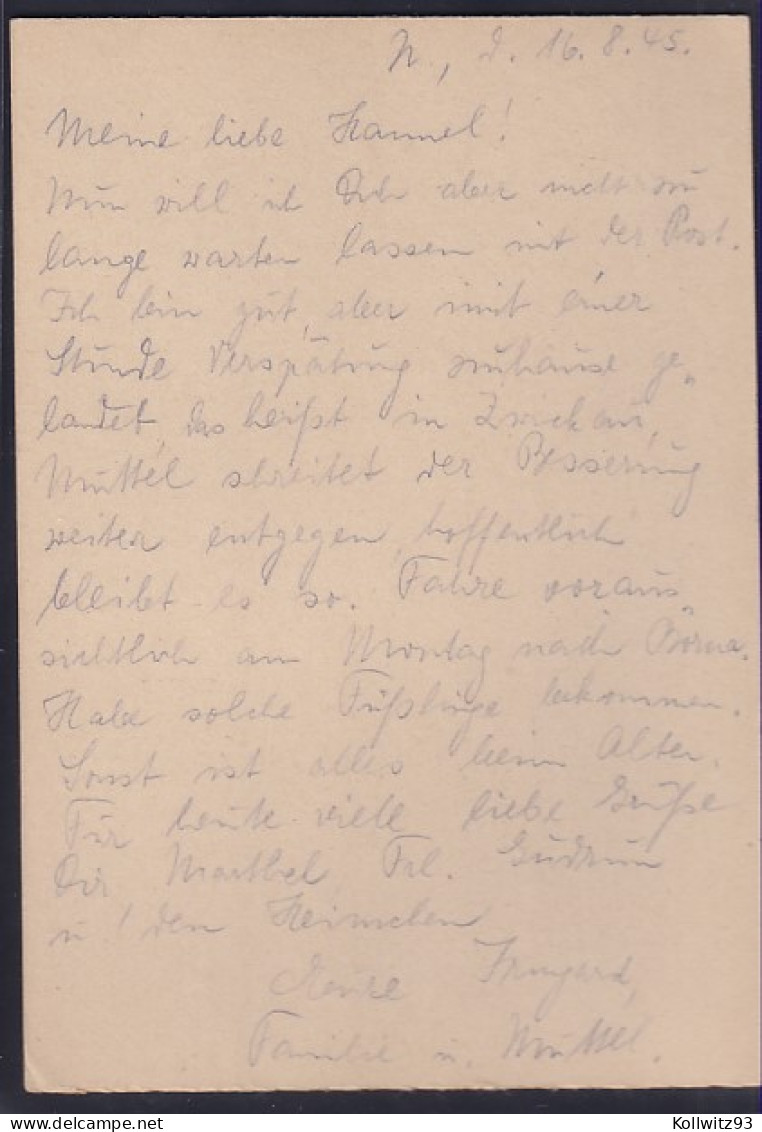 N., d. 16. 8. 45.
Meine liebe Hannel!
Nun will ich Dich aber nicht zu
lange warten lassen mit der Post.
Ich bin gut, aber mit einer
Stunde Verspätung zuhause ge-
landet, das heißt in Zwickau,
Muttel schreitet der Besserung
weiter entgegen, hoffentlich
bleibt es so. Fahre voraus-
sichtlich am Montag nach Borna.
Habe solche Füßlinge bekommen.
Sonst ist alles beim Alten.
Für heute viele liebe Grüße
Dir Frl. Gudrun
u! den Heimchen
Deine Irmgard,
Familie u. Muttel.
Kollwitz93